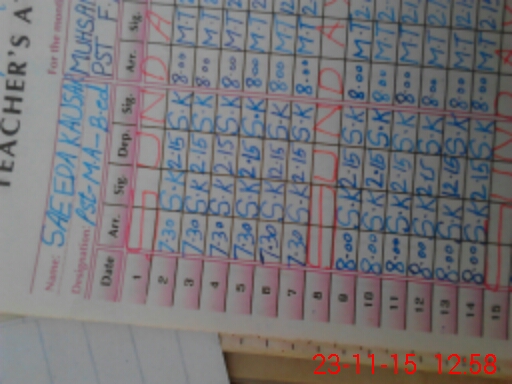 TEACHER'S A
For the mon
Name: SAEEDA KAUSAR MUHSA
Designation: PST-MA-Bed PST F.
Date Arr. Sig. Dep. Sig. Arr. Sig.
1 SUNDA
2 7.30 S.K 2.15 S.K 8.00 M.T
3 7.30 S.K 2.15 S.K 8.00 M.T
4 7.30 S.K 2.15 S.K 8.00 M.T
5 7.30 S.K 2.15 S.K 8.00 M.T
6 7.30 S.K 2.15 S.K 8.00 M.T
7 7.30 S.K 2.15 S.K 8.00 M.T
8 SUNDAY
9 8.00 S.K 2.15 S.K 8.00 M.T
10 8.00 S.K 2.15 S.K 8.00 M.T
11 8.00 S.K 2.15 S.K 8.00 M.T
12 8.00 S.K 2.15 S.K 8.00 M.T
13 8.00 S.K 2.15 S.K 8.00 M.T
14 8.00 S.K 2.15 S.K 8.00 M.T
15
23-11-15 12:58